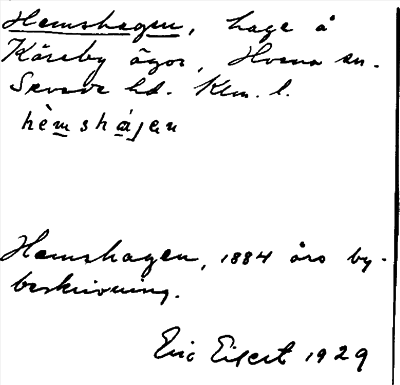 Hemshagen, hage å
Kåreby ägor, Hvena sn.
Sevede hd. Klm. l.
hèmshájen
Hemshagen, 1884 års by-
beskrivning.
Eric Elgert 1929